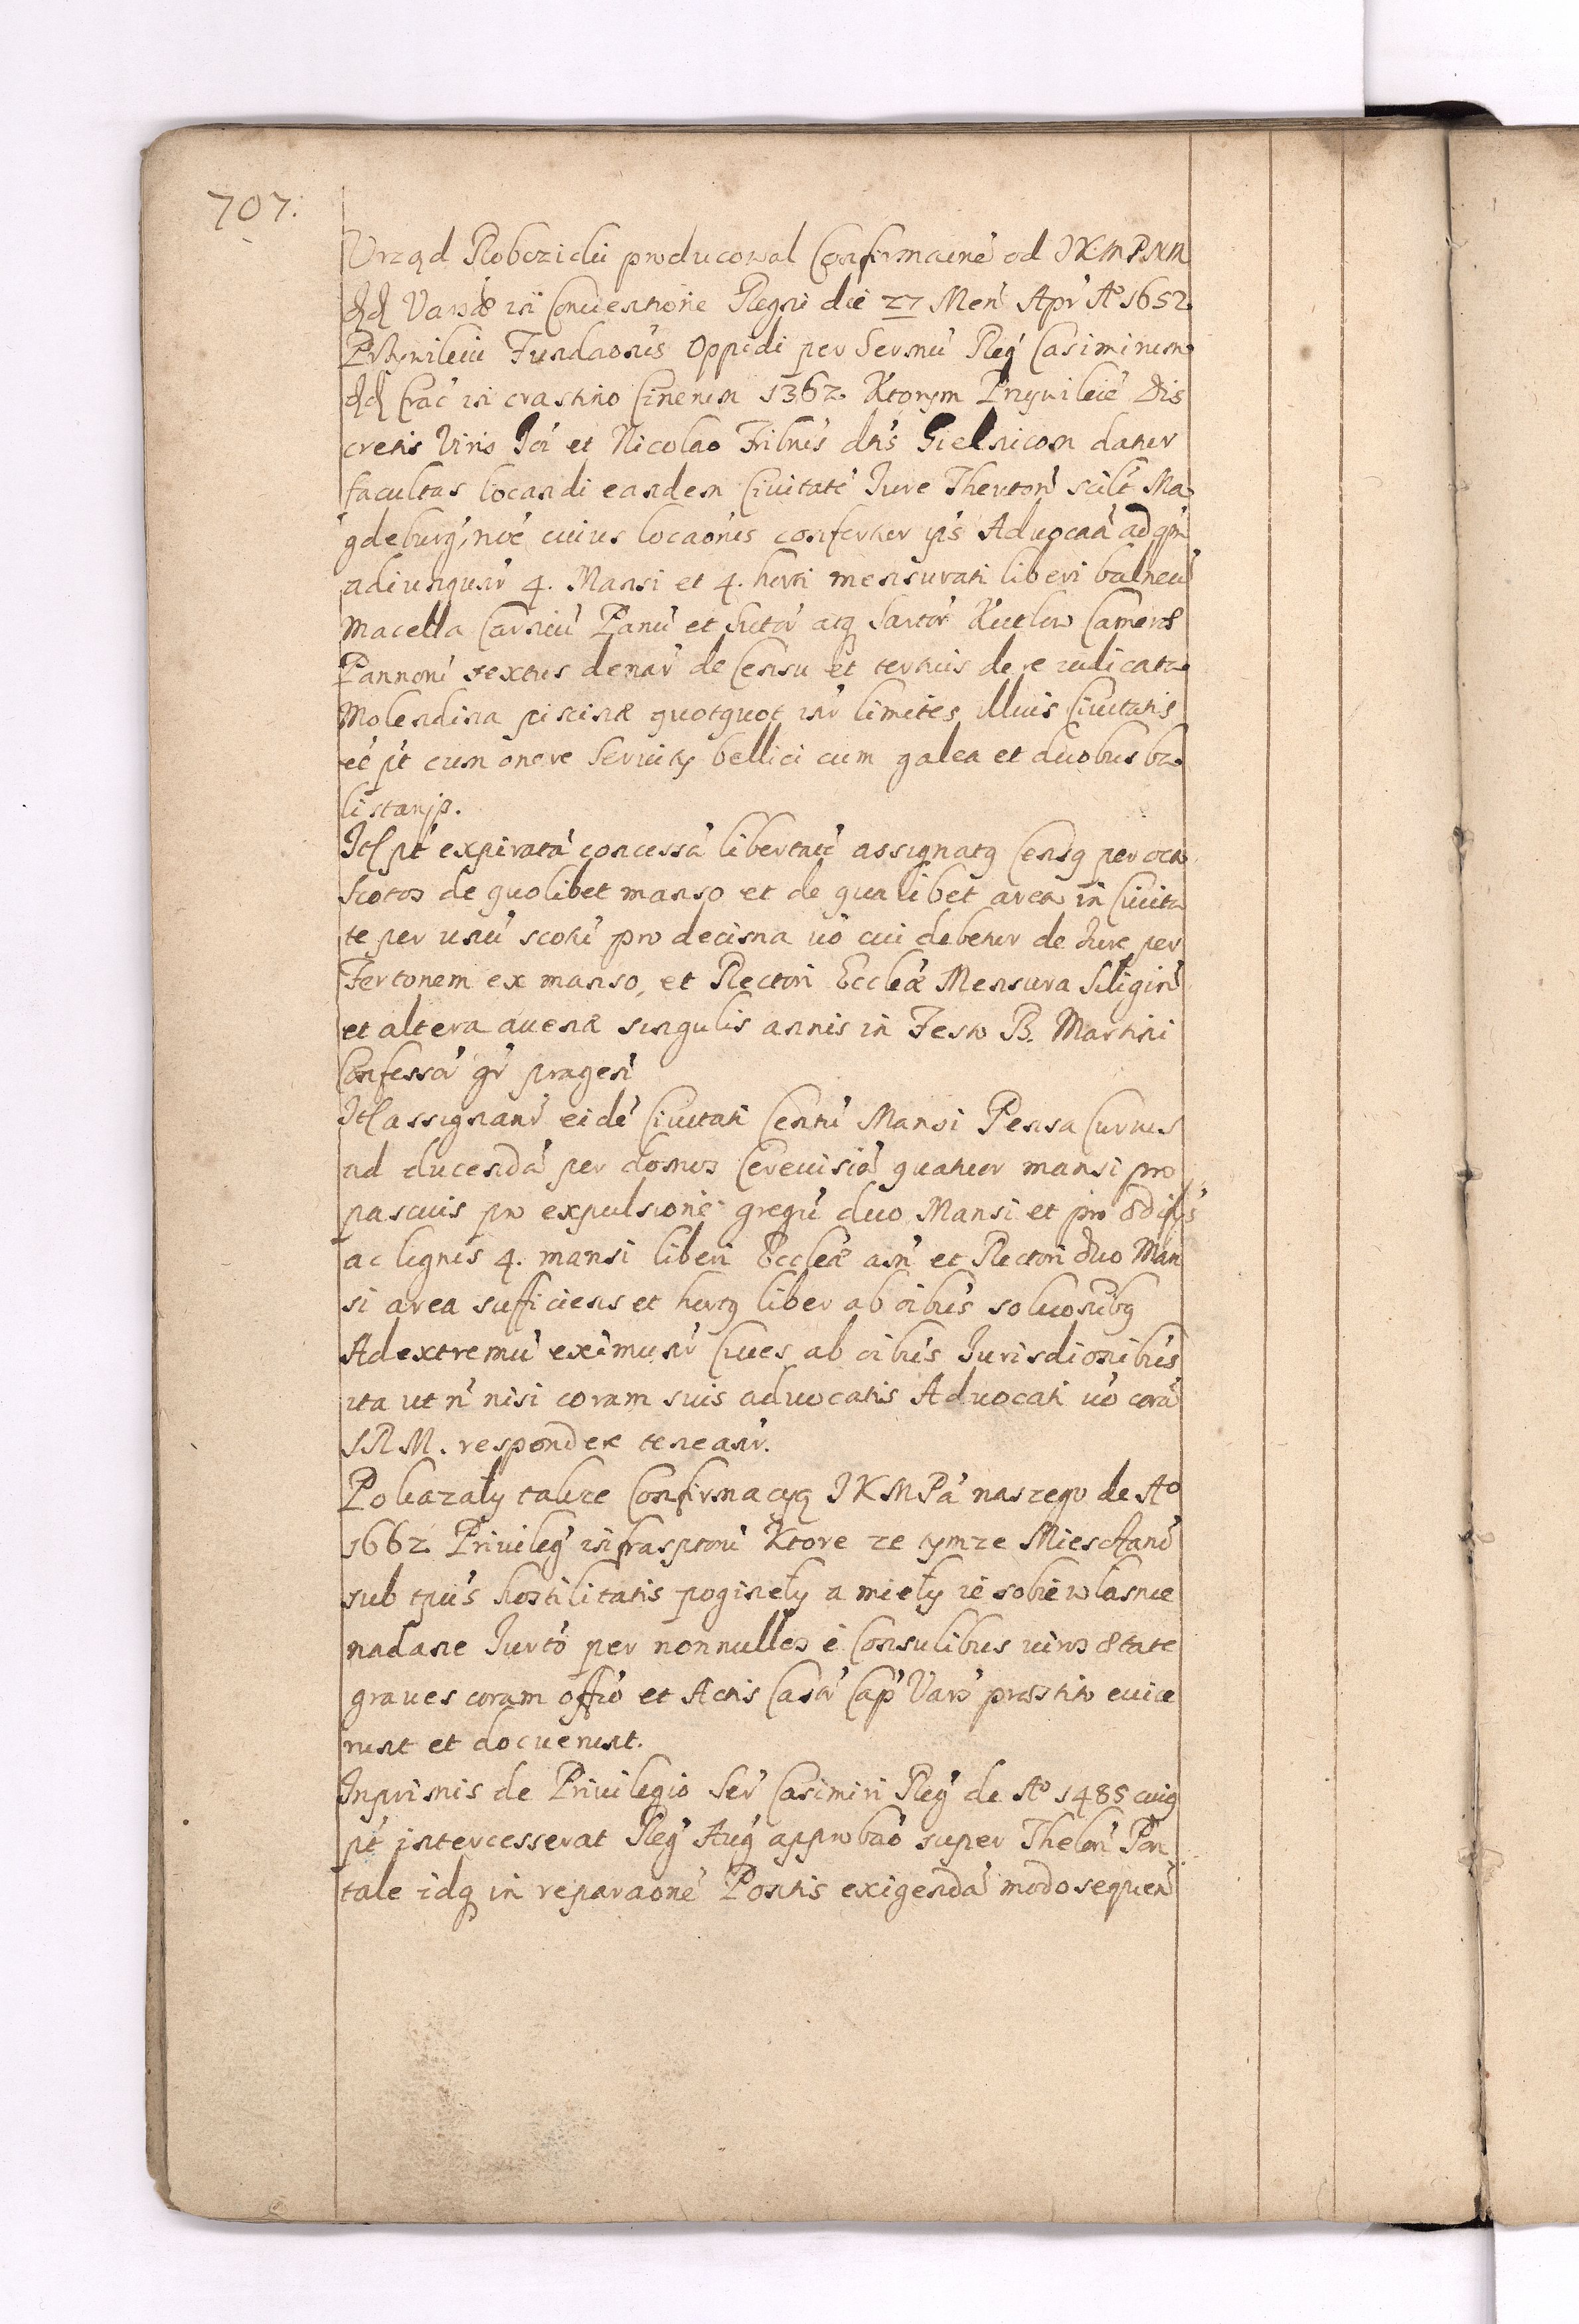 707.
Vrząd Robczicki producował Confirmacine od JKMPNM
dd Varsae in Conventione Regni die 27 Men Apr Ao 1652
Privileiu Fundaonis Oppidi per Sermu Reg Casimirum
dd Crac in crastino Cinerum 1362. Ktorym Przywileie Dis
cretis Viris Joi et Nicolao Fribus dtis Gielnicom datur
facultas locandi eandem Civitate Jure Theuton scilt Ma
gdeburg, noe cuius locaonis confertur ipis Advocaa ad qm
adiungunr 4. Mansi et 4. horti mensurati liberi balneu
Macella Carniu Panu et sutor atq Sartor Kutlow Camerae
Pannoni sextus denar de Censu et tertius de re iudicata
Molendina piscinae quotquot inr limites illius Civitatis
et pt cum onere Servity bellici cum galea et duobus ba
listarijs.
Itl pt expirata concessa libertate assignatq Censq per octo
scotos de quolibet manso et de qualibet area in Civita
te per unu scotu pro decima uo cui debetur de Jure per
Fertonem ex manso, et Rectori Ecclae Mensura Siligin
et altera avenae singulis annis in Festo B. Martini
Confessor gr pragen
Itl assignanr eide Civitati Centu Mansi Pensa Currus
ad ducenda per domos Cerevisia quatuor mansi pro
pascuis pro expulsione gregu duo Mansi et pro aedifys
ac lignis 4. mansi liberi Ecclae au et Rectori duo Man
si area sufficiens et hortq liber ab oibus soluonibq
Ad extremu eximunr Cives ab oibus Jurisdionibus
ita ut n nisi coram suis advocatis Advocati uo cora
SRM. respondere teneanr.
Pokazały takze Confirmacyą JKMPa naszego de Ao
1662 Privileg infrasptoru Ktore ze tymze Miesczano
sub tpus hostilitatis poginęły a mięły ie sobie własnie
nadane Jurto per nonnullos e Consulibus viros aetate
graves coram offio et Actis Casr Cap Vars praestito evice
runt et docuerunt.
Inprimis de Privilegio Ser Casimiri Reg de Ao 1485 cuiq
pt intercesserat Reg Aug approbao super Thelon Pon
tale idq in reparaone Pontis exigenda modo sequen